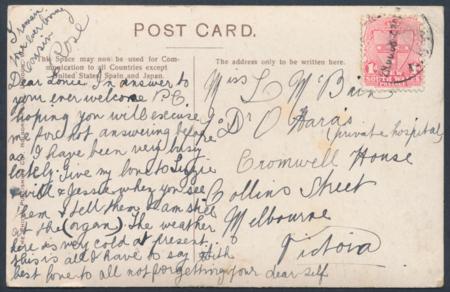 I remain
your ever loving
Cousin
POST CARD.
This Space may now be used for Com-
munication to all Countries except
United States, Spain and Japan.
The address only to be written here.
Dear Lonie. In answer to
your ever welcome P.C.
hoping you will excuse
me for not answering before
as I have been very busy
lately. Give my love to
& Jessie when you see
them & tell them I am still
in the (organ). The weather
here is very cold at present.
this is all I have to say with
best love to all not forgetting your dear self
Miss L McBain
Dr O Haras
(private hospital)
Cromwell House
Collins Street
Melbourne
Victoria